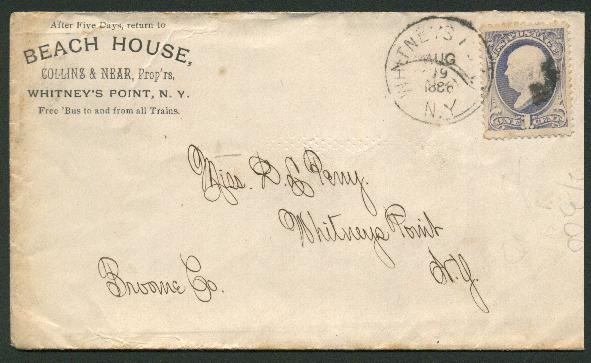 After Five Days, return to
BEACH HOUSE,
COLLINS & NEAR, Prop'rs,
WHITNEY'S POINT, N. Y.
Free 'Bus to and from all Trains.
WHITNEYS
AUG
19
1886
N.Y.
Miss. R. L. Perry.
Whitneys Point
N.Y.
Broome Co.